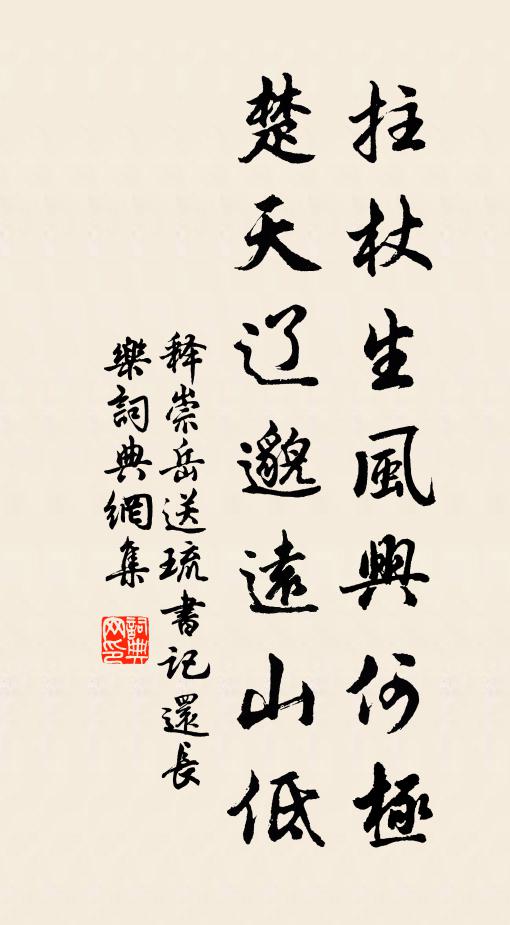 拄杖生風興何極
楚天辽邈遠山低
释崇岳送琉書记還長
樂詞典網集
詞典
网印